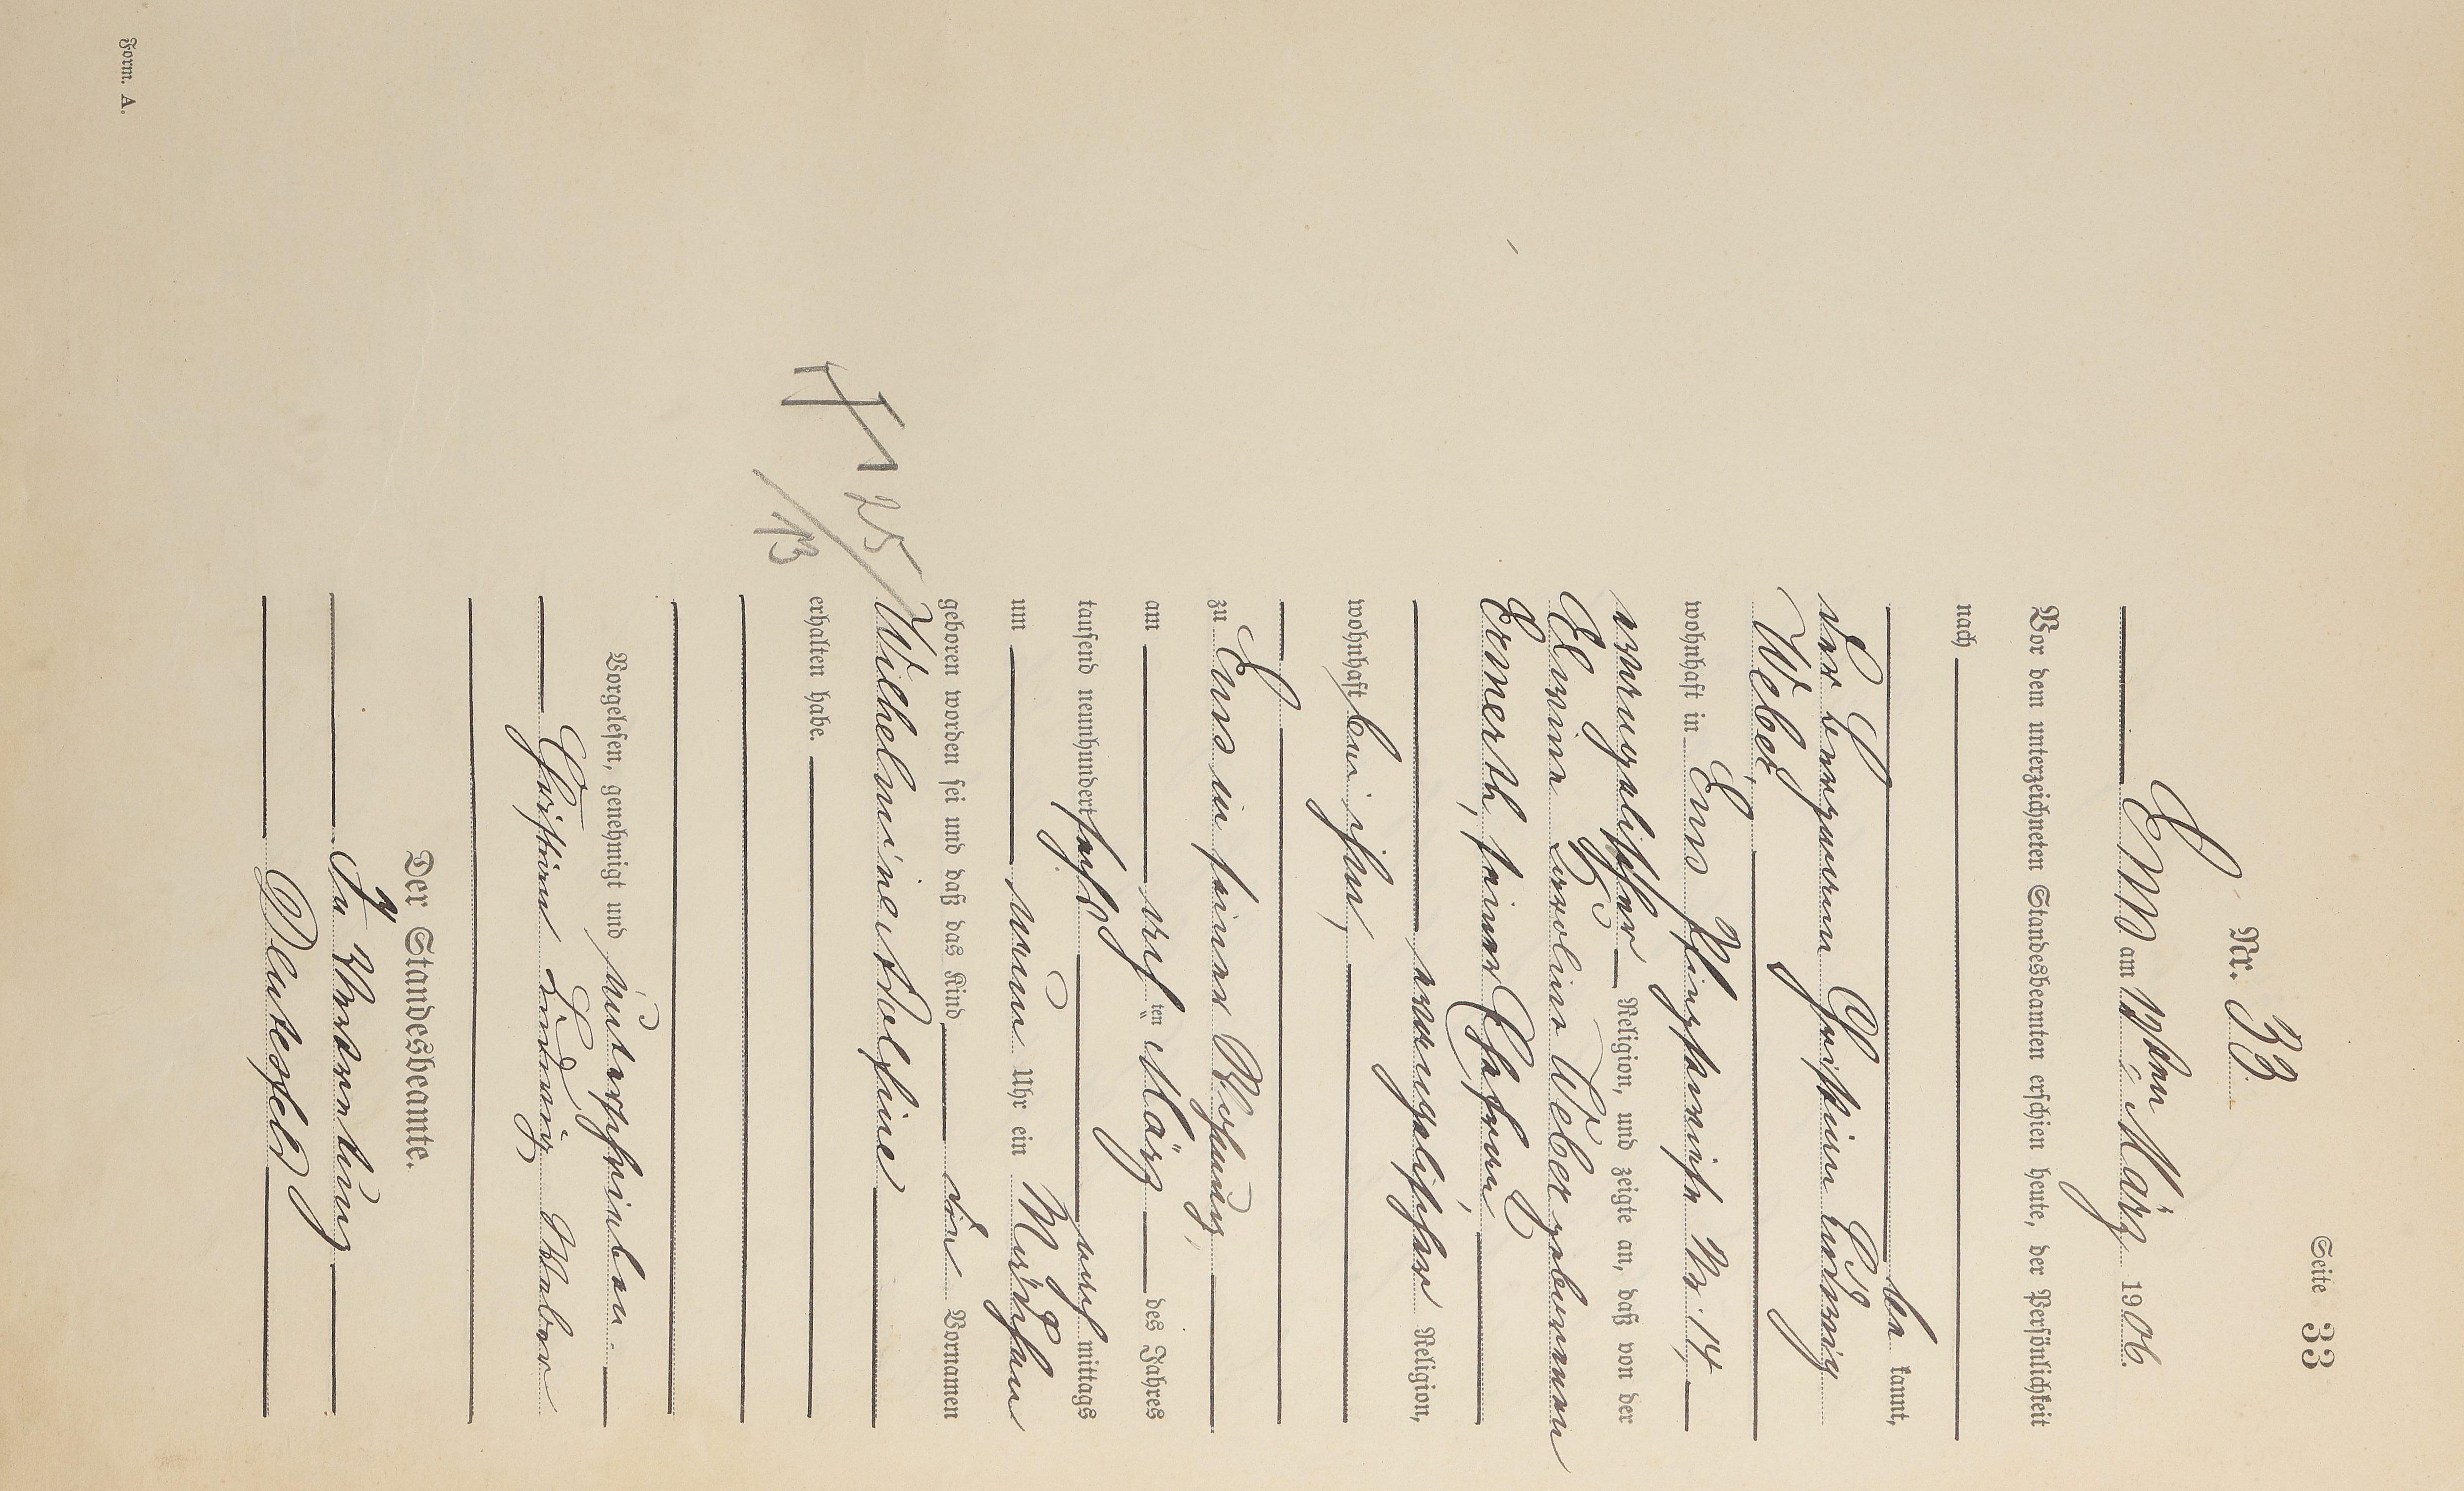 Seite 33
Nr. 33.
Ems am 13ten März 1906.
Vor dem unterzeichneten Standesbeamten erschien heute, der Persönlichkeit
nach
be kannt,
der Bergmann Christian Ludwig
Weber,
wohnhaft in Ems, Nr. 14,
evangelischer Religion, und zeigte an, daß von der
Weber geborenen
Ermerth, seiner Ehefrau,
evangelischer Religion,
wohnhaft bei ihm,
zu Ems in seiner Wohnung,
am acht ten März des Jahres
tausend neunhundert sechs nach mittags
um neun Uhr ein Mädchen
geboren worden sei und daß das Kind die Vornamen
Wilhelmine Adolfine
erhalten habe.
25/13
Vorgelesen, genehmigt und unterschrieben
Christian Ludwig Weber
Der Standesbeamte.
In Vertretung
Deutesfeld
Form. A.